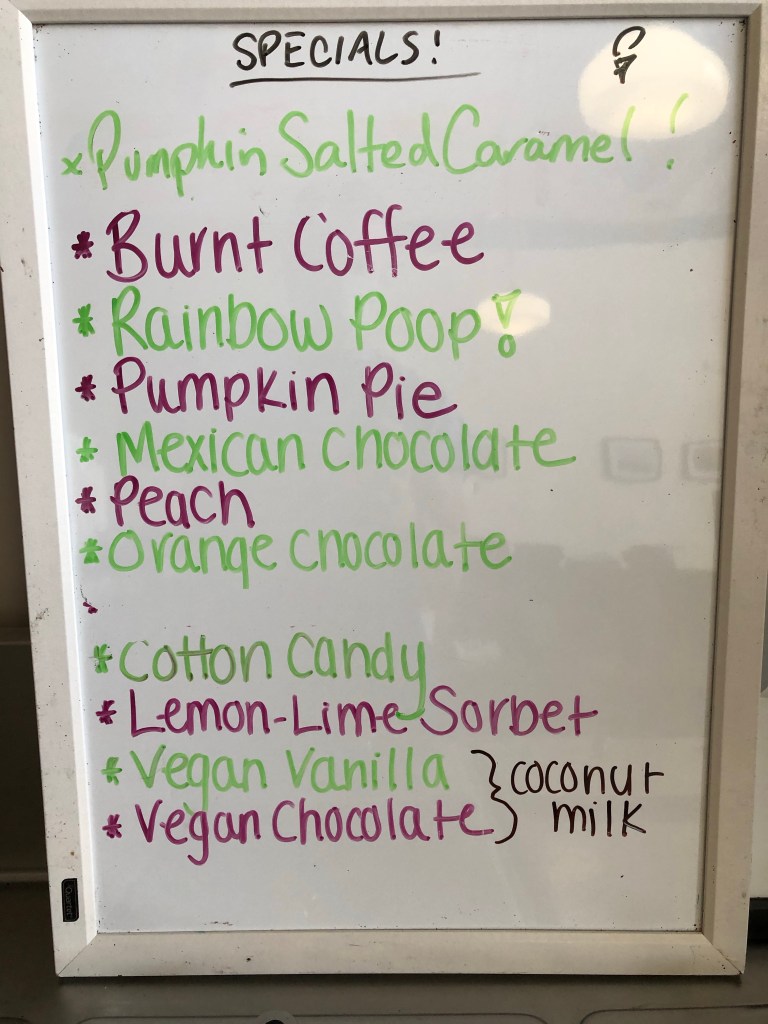 SPECIALS!
* Pumpkin Salted Caramel!
* Burnt Coffee
* Rainbow Poop!
* Pumpkin Pie
* Mexican Chocolate
* Peach
* Orange Chocolate
* Cotton Candy
* Lemon-Lime Sorbet
* Vegan Vanilla } coconut
* Vegan Chocolate } milk
Quartet